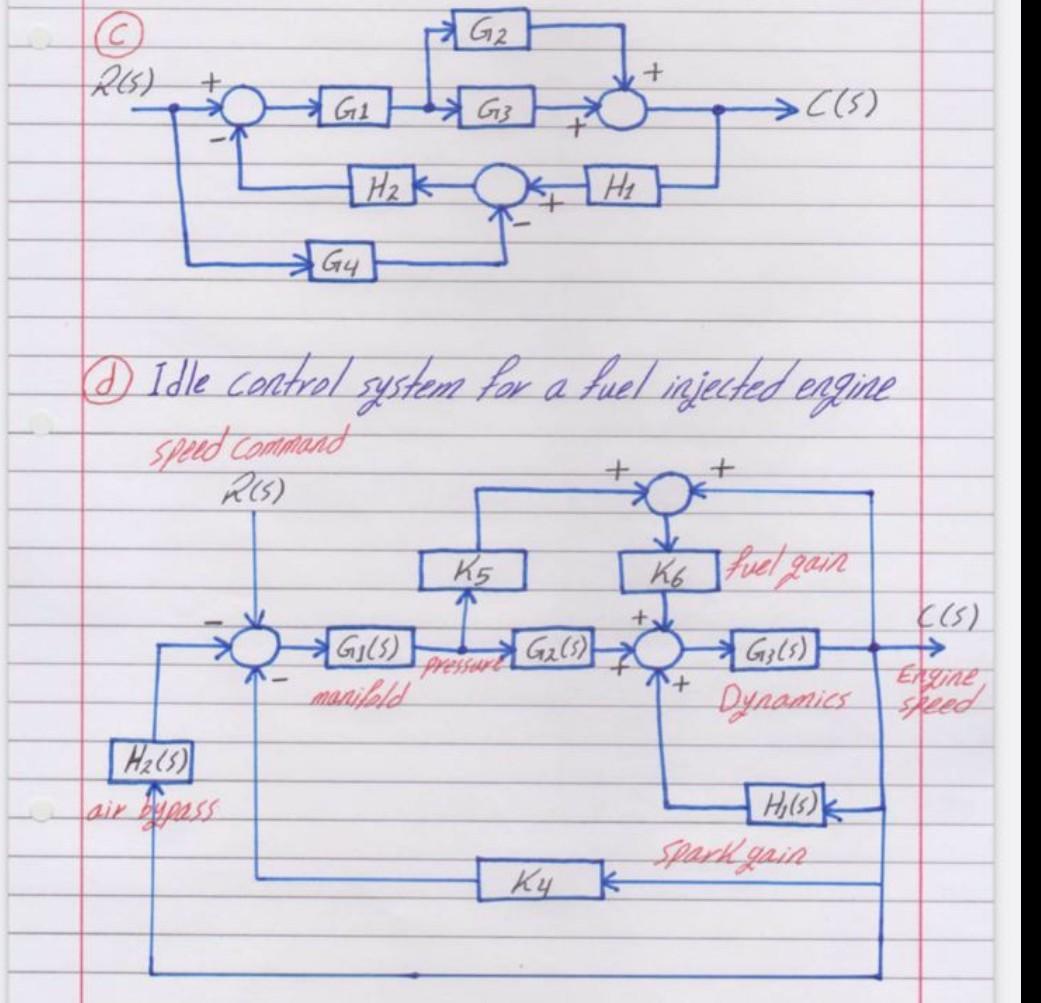 c
G2
R(s) + G1 G3 + + C(s)
- H2 + H1
-
G4
d Idle control system for a fuel injected engine
speed command
R(s) + +
K5 K6 fuel gain
- G1(s) pressure G2(s) + + G3(s) C(s)
- manifold + Dynamics Engine speed
H2(s)
air bypass H1(s)
spark gain
K4